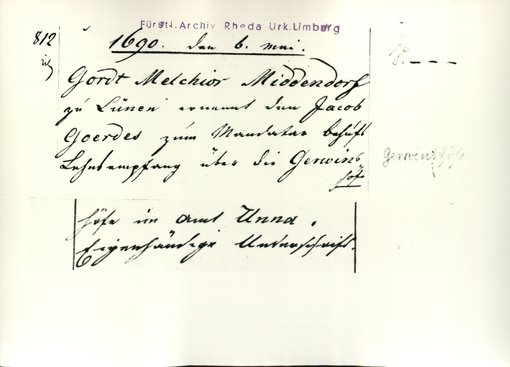 Fürstl. Archiv Rheda Urk. Limburg
812
1690. den 6. mai.
Gordt Melchior Middendorf
zu Lünen ernennt den Jacob
Goerdes zum Mandatar behufs
Lehnsempfang über die Gerwins
höfe
Gerwinshöfe
höfe im Amt Unna.
Eigenhändige Unterschrift.